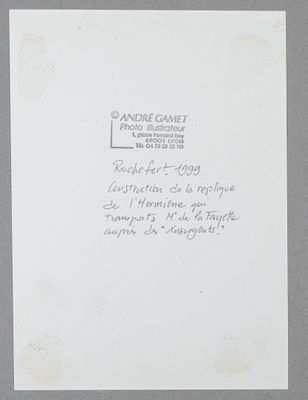 © ANDRÉ GAMET
Photo Illustrateur
1, place Fernand Rey
69001 LYON
TÉL 04 78 28 22 10
Rochefort. 1999
Construction de la réplique
de l'Hermione qui
transporta Mr de la Fayette
auprès des "insurgents".